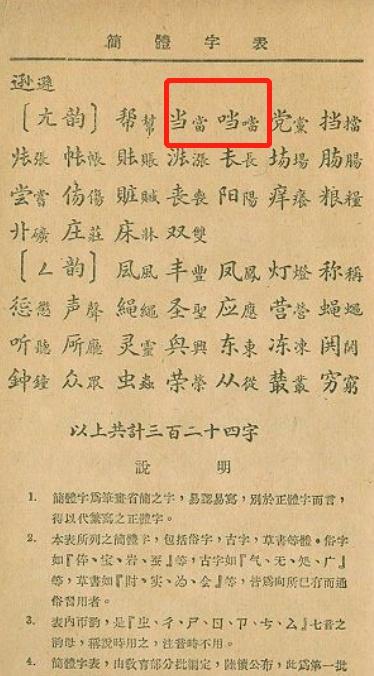 簡體字表
逊遜
〔ㄤ韵〕帮幫 当當 噹噹 党黨 挡擋
张張 帐帳 账賬 涨漲 长長 场場 肠腸
尝嘗 伤傷 赃贓 丧喪 阳陽 痒癢 粮糧
卝礦 庄莊 床牀 双雙
〔ㄥ韵〕凨風 丰豐 凤鳳 灯燈 称稱
惩懲 声聲 绳繩 圣聖 应應 营營 蝇蠅
听聽 厛廳 灵靈 兴興 东東 冻凍 閧鬨
鈡鐘 众眾 虫蟲 荣榮 从從 丛叢 穷窮
以上共計三百二十四字
說明
1. 簡體字爲筆畫省簡之字,易認易寫,別於正體字而言,
得以代繁寫之正體字。
2. 本表所列之簡體字,包括俗字,古字,草書等體。俗字
如『体、宝、岩、蚕』等,古字如『气、无、処、广』
等,草書如『时、实、为、会』等,皆爲向所已有而通
俗習用者。
3. 表內帀韵,是『ㄓ、ㄔ、ㄕ、ㄖ、ㄗ、ㄘ、ㄙ』七音之
韵母,稱說時用之,注音時不用。
4. 簡體字表,由教育部分批制定,陸續公布,此爲第一批